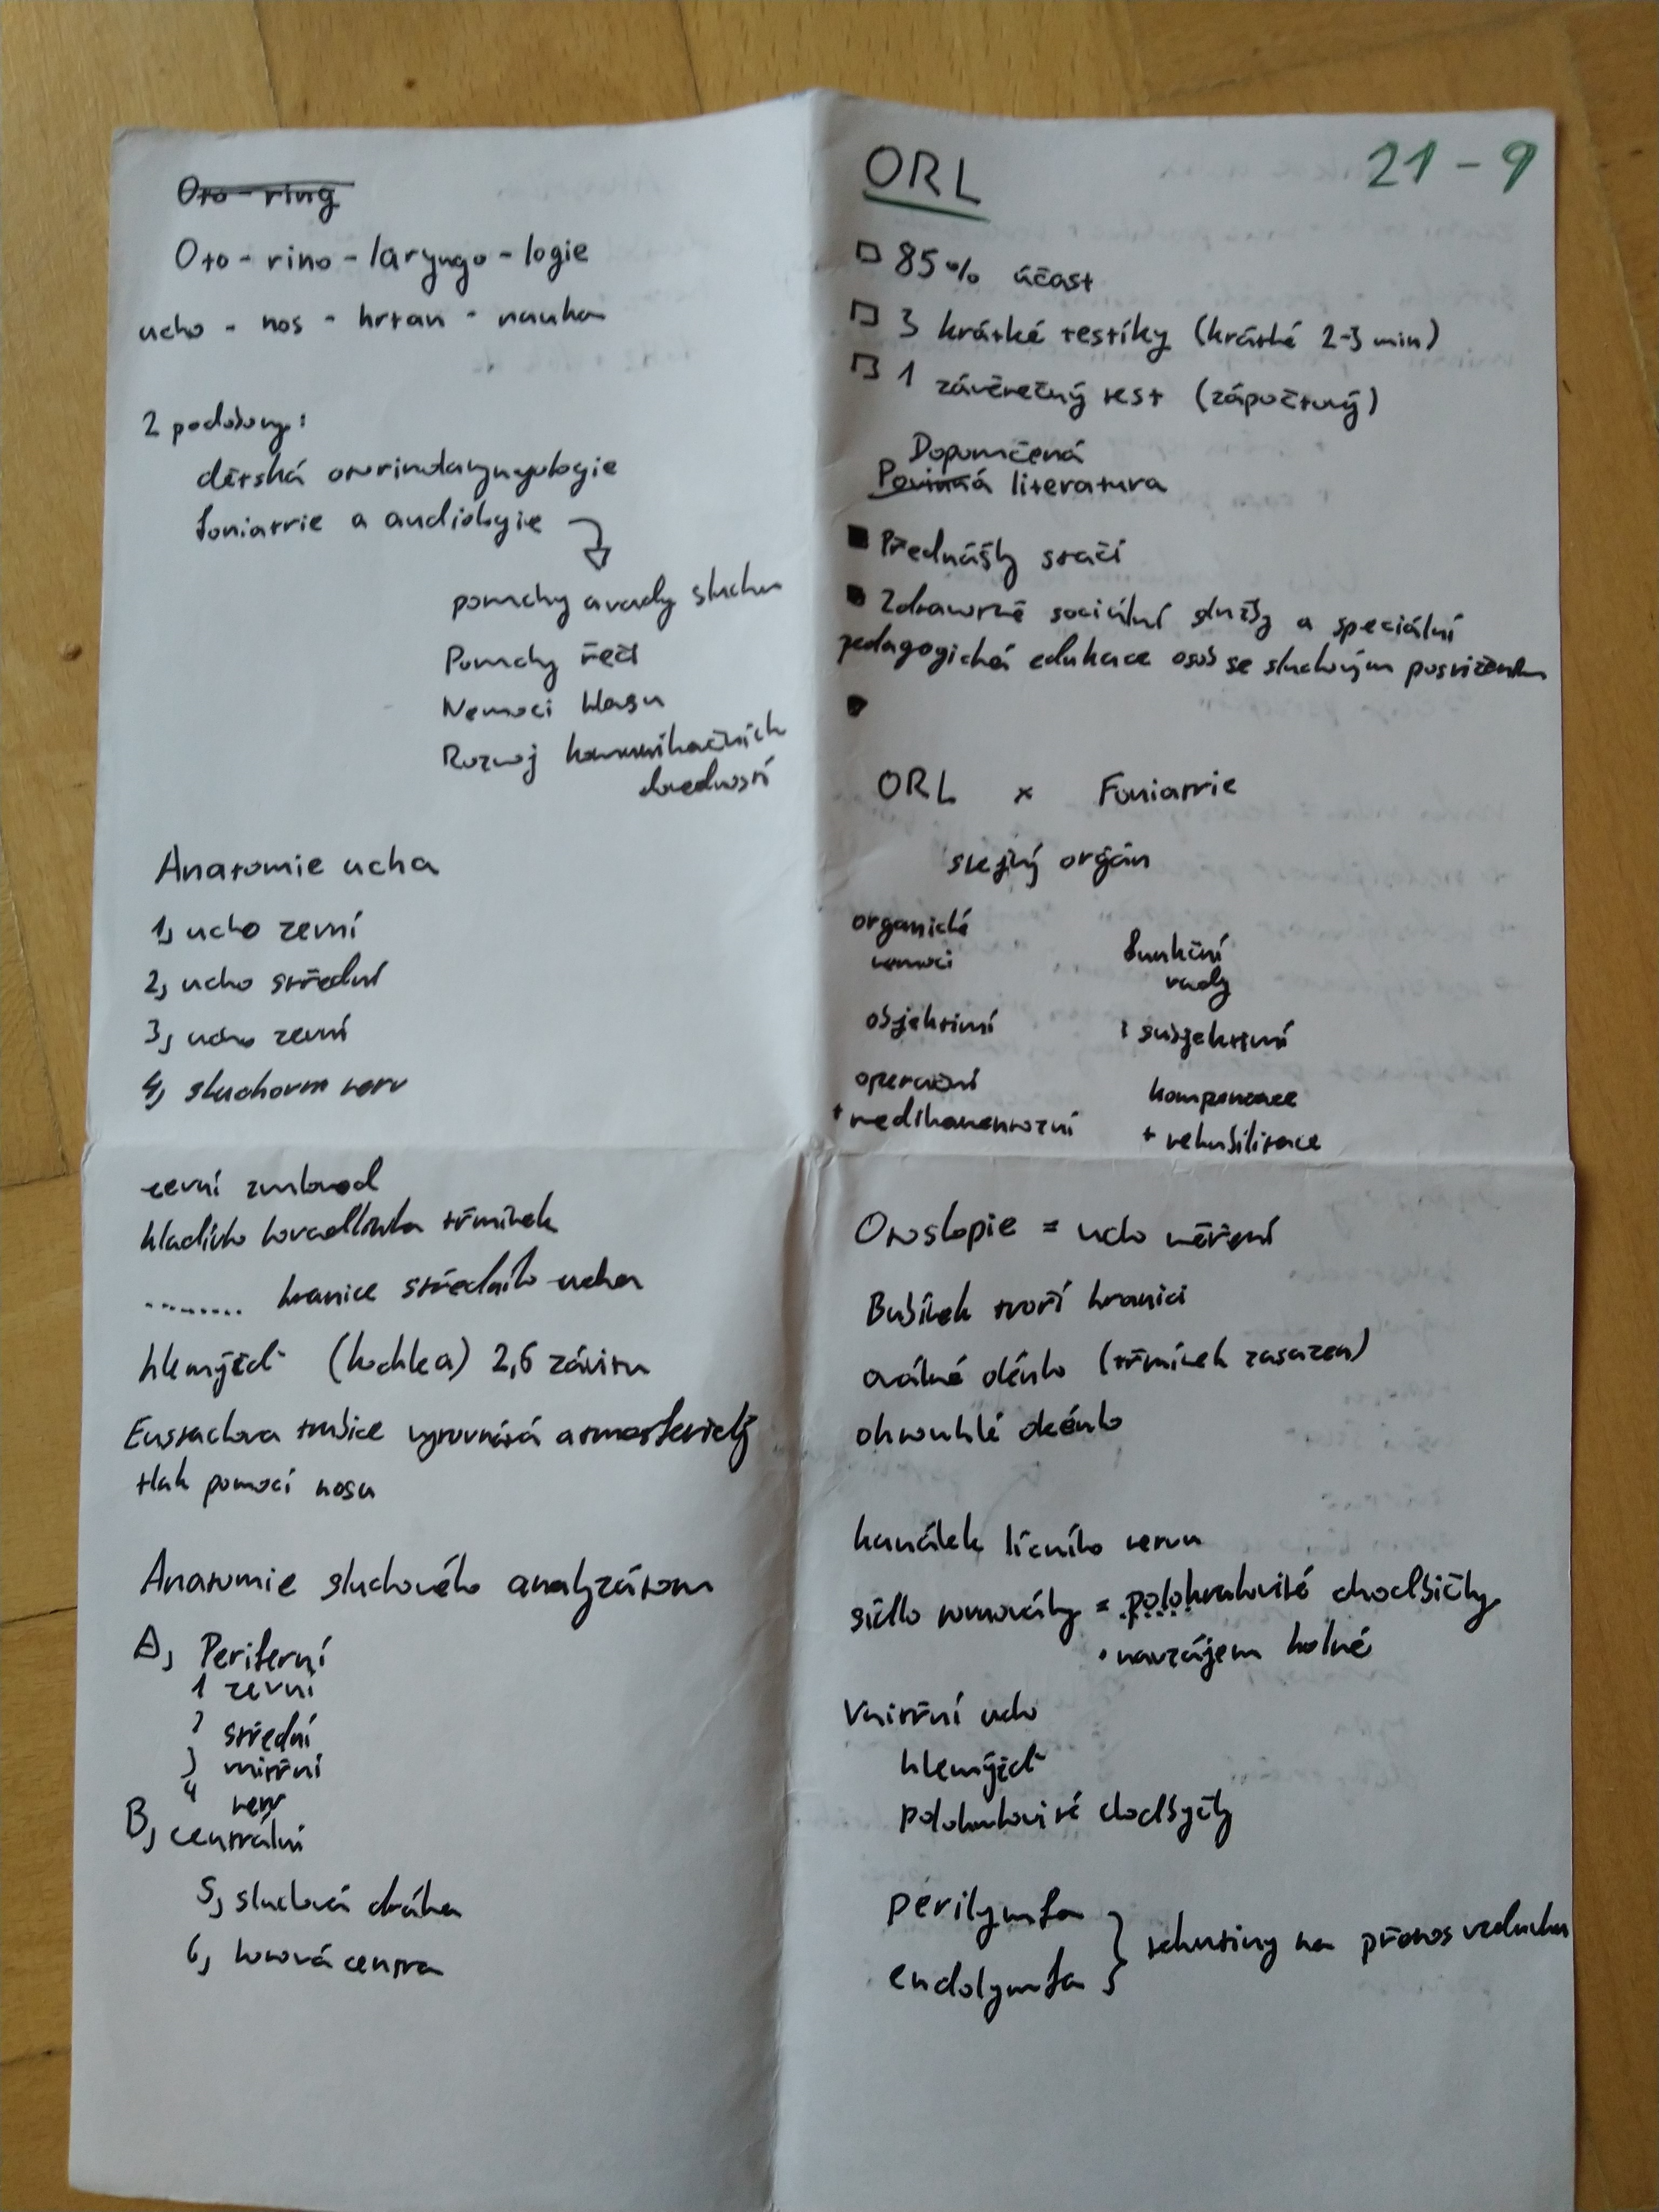 Oto-ring
Oto - rino - laryngo - logie
ucho - nos - hrtan - nauka
2 podobory:
dětská otorinolaryngologie
foniatrie a audiologie
poruchy a vady sluchu
Poruchy řeči
Nemoci hlasu
Rozvoj komunikačních
dovedností
Anatomie ucha
1, ucho zevní
2, ucho střední
3, ucho zevní
4, sluchovm nerv
zevní zvukovod
kladívko kovadlinka třmínek
........ hranice středního ucha
hlemýžď (kochlea) 2,6 závitu
Eustachova trubice vyrovnává atmosferický
tlak pomocí nosu
Anatomie sluchového analyzátoru
A, Periferní
1 zevní
2 střední
3 vnitřní
4 nerv
B, centrální
5, sluchová dráha
6, korová centra
ORL
21 - 9
85% účast
3 krátké testíky (krátké 2-3 min)
1 závěrečný test (zápočtový)
Doporučená
Povinná literatura
Přednášky stačí
Zdravotně sociální služby a speciální
pedagogická edukace osob se sluchovým postižením
ORL x Foniatrie
stejný orgán
organické funkční
nemoci vady
objektivní i subjektivní
operační kompenzace
+ medikamentozní + rehabilitace
Otoskopie = ucho měření
Bubínek tvoří hranici
oválné okénko (třmínek zasazen)
okrouhlé okénko
kanálek lícního nervu
sídlo rovnováhy = polokruhovité chodbičky
• navzájem kolmé
Vnitřní ucho
hlemýžď
polokruhovité chodbyčky
perilymfa
endolymfa } tekutiny na přenos vzduchu